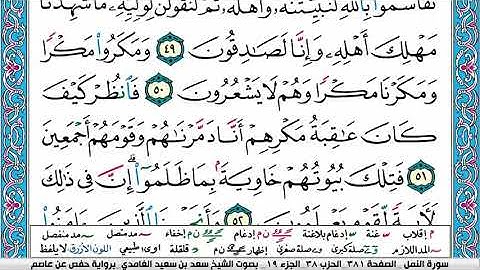 تَقَاسَمُوا۟ بِٱللَّهِ لَنُبَيِّتَنَّهُۥ وَأَهْلَهُۥ ثُمَّ لَنَقُولَنَّ لِوَلِيِّهِۦ مَا شَهِدْنَا
مَهْلِكَ أَهْلِهِۦ وَإِنَّا لَصَـٰدِقُونَ ٤٩ وَمَكَرُوا۟ مَكْرًا
وَمَكَرْنَا مَكْرًا وَهُمْ لَا يَشْعُرُونَ ٥٠ فَٱنظُرْ كَيْفَ
كَانَ عَـٰقِبَةُ مَكْرِهِمْ أَنَّا دَمَّرْنَـٰهُمْ وَقَوْمَهُمْ أَجْمَعِينَ
٥١ فَتِلْكَ بُيُوتُهُمْ خَاوِيَةًۢ بِمَا ظَلَمُوٓا۟ ۗ إِنَّ فِى ذَٰلِكَ
٥٢
م إقلاب غنة إدغام بلاغنة إدغام ن م إخفاء مد متصل مد منفصل
المد اللازم صلة كبرى صلة صغرى إظهار ن م قلقلة اوى طبيعي اللون الأزرق لا يلفظ
سورة النمل الصفحة ٣٨١ الحزب ٣٨ الجزء ١٩ بصوت الشيخ سعد بن سعيد الغامدي برواية حفص عن عاصم